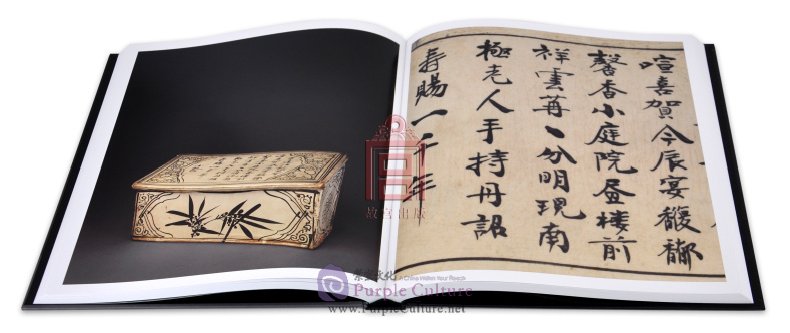 喧喜賀今辰宴馥
馨香小庭院昼楼前
祥雲苒〻分明現南
極老人手持丹詔
壽賜一千年
故宫出版
a China Within Your Reach
Purple Culture
www.PurpleCulture.net